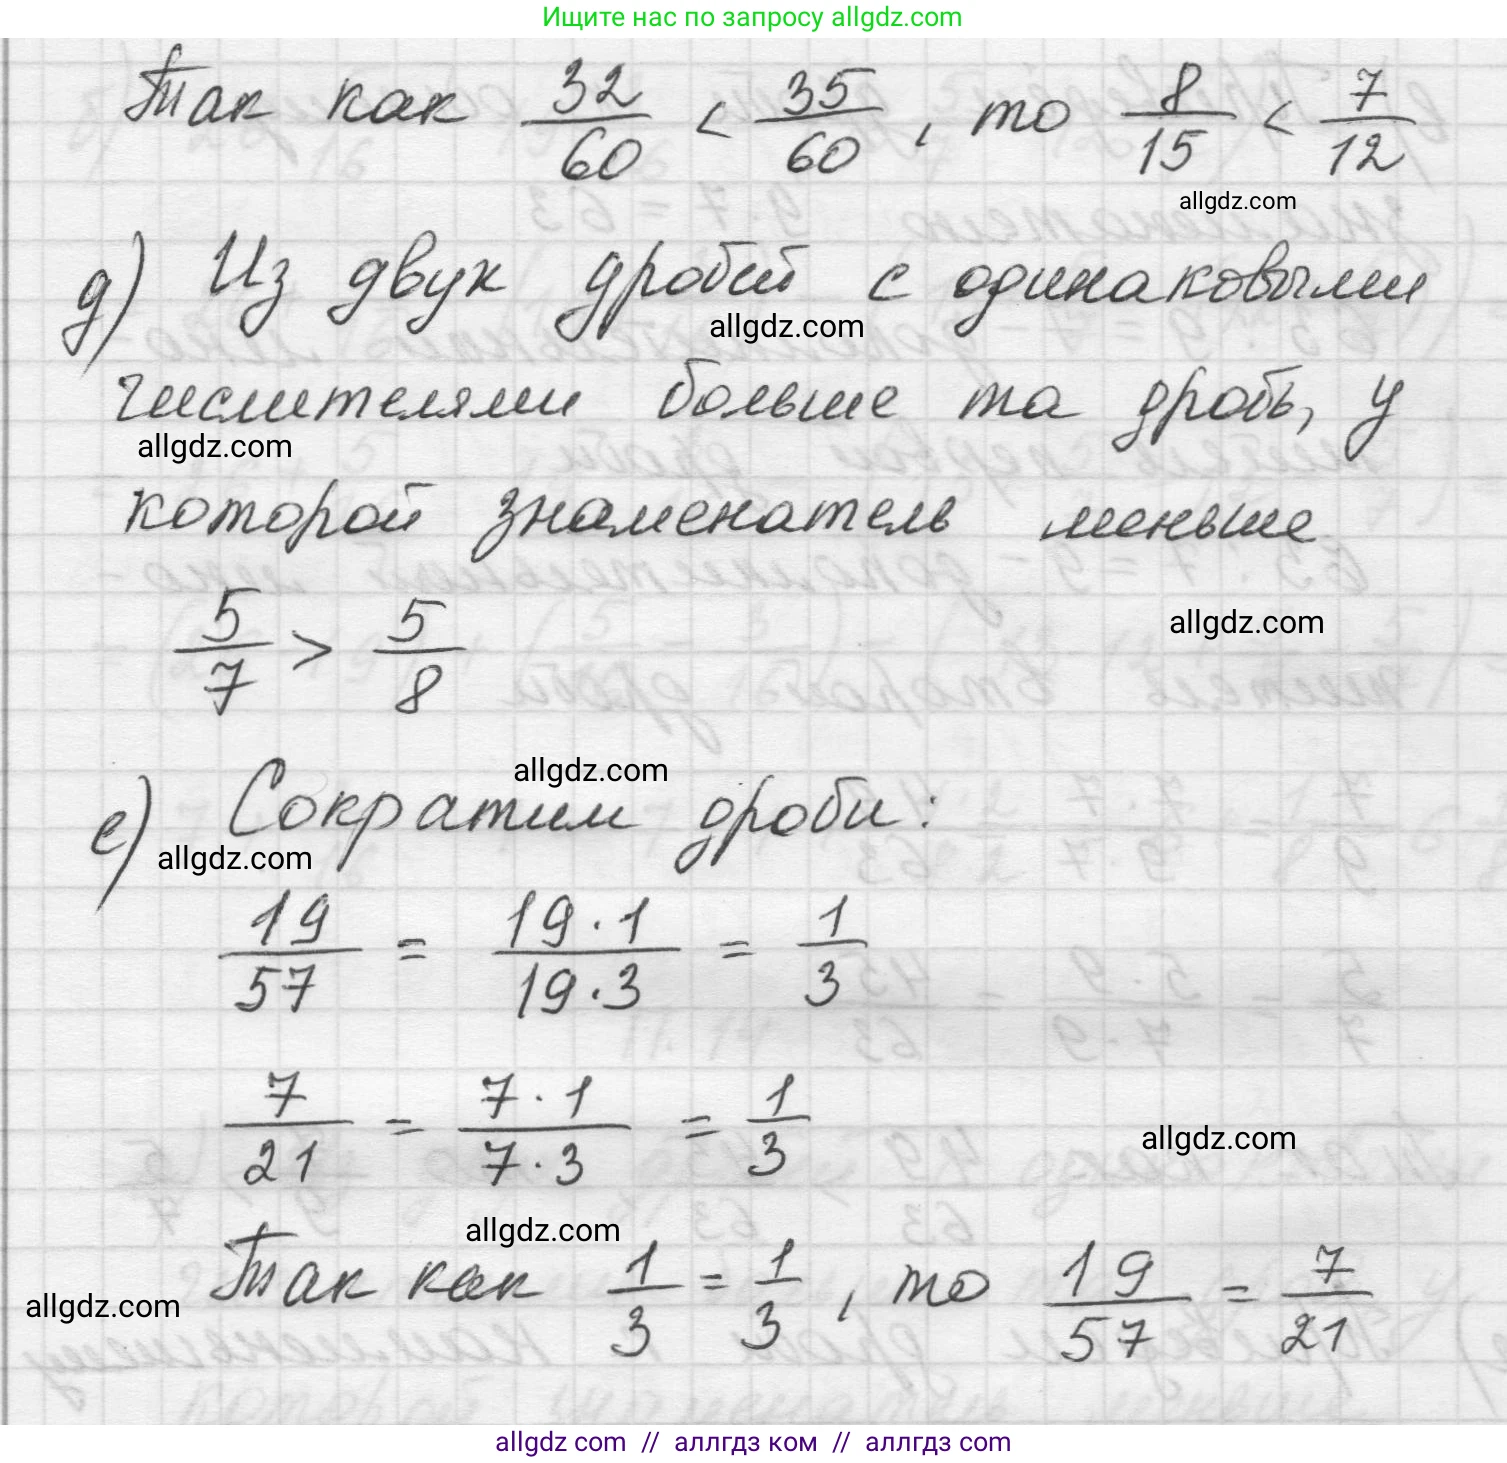 Ищите нас по запросу allgdz.com
Так как 32/60 < 35/60, то 8/15 < 7/12
allgdz.com
д) Из двух дробей с одинаковыми
allgdz.com
числителями больше та дробь, у
allgdz.com
которой знаменатель меньше
5/7 > 5/8
allgdz.com
allgdz.com
е) Сократим дроби:
allgdz.com
19/57 = 19·1/19·3 = 1/3
7/21 = 7·1/7·3 = 1/3
allgdz.com
allgdz.com
Так как 1/3 = 1/3, то 19/57 = 7/21
allgdz.com
allgdz com // аллгдз ком // аллгдз com